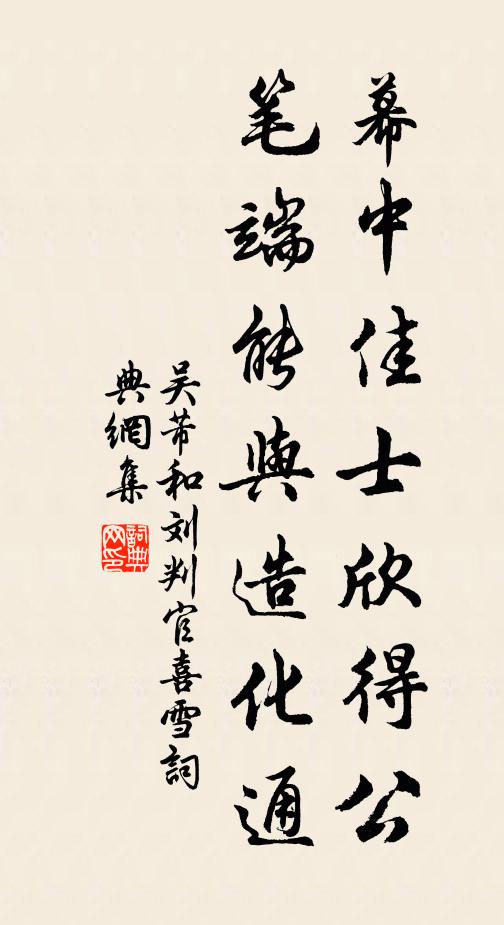 幕中佳士欣得公
笔端能與造化通
吴芾和刘判官喜雪詞
典網集
詞典
网印